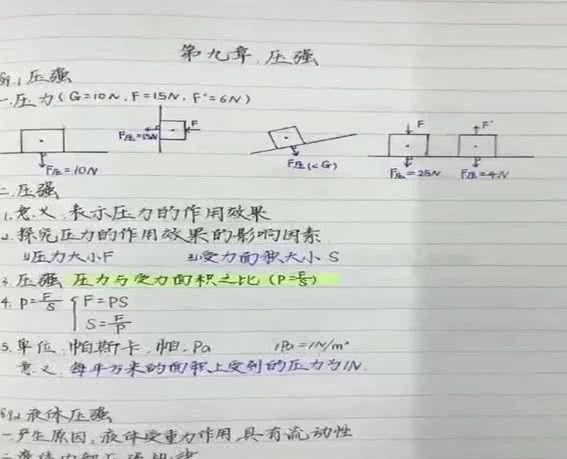 第九章 压强
§9.1 压强
一.压力(G=10N, F=15N, F'=6N)
F压=10N
F压=15N
F
F压(<G)
F
F压=25N
F'
F压=4N
二.压强
1.意义.表示压力的作用效果
2.探究压力的作用效果的影响因素
1)压力大小F 2)受力面积大小 S
3.压强 压力与受力面积之比(P=F/S)
4. P=F/S { F=PS
S=F/P
5.单位.帕斯卡.帕.Pa 1Pa=1N/m²
意义.每平方米的面积上受到的压力为1N.
§9.2 液体压强
一产生原因.液体受重力作用,具有流动性